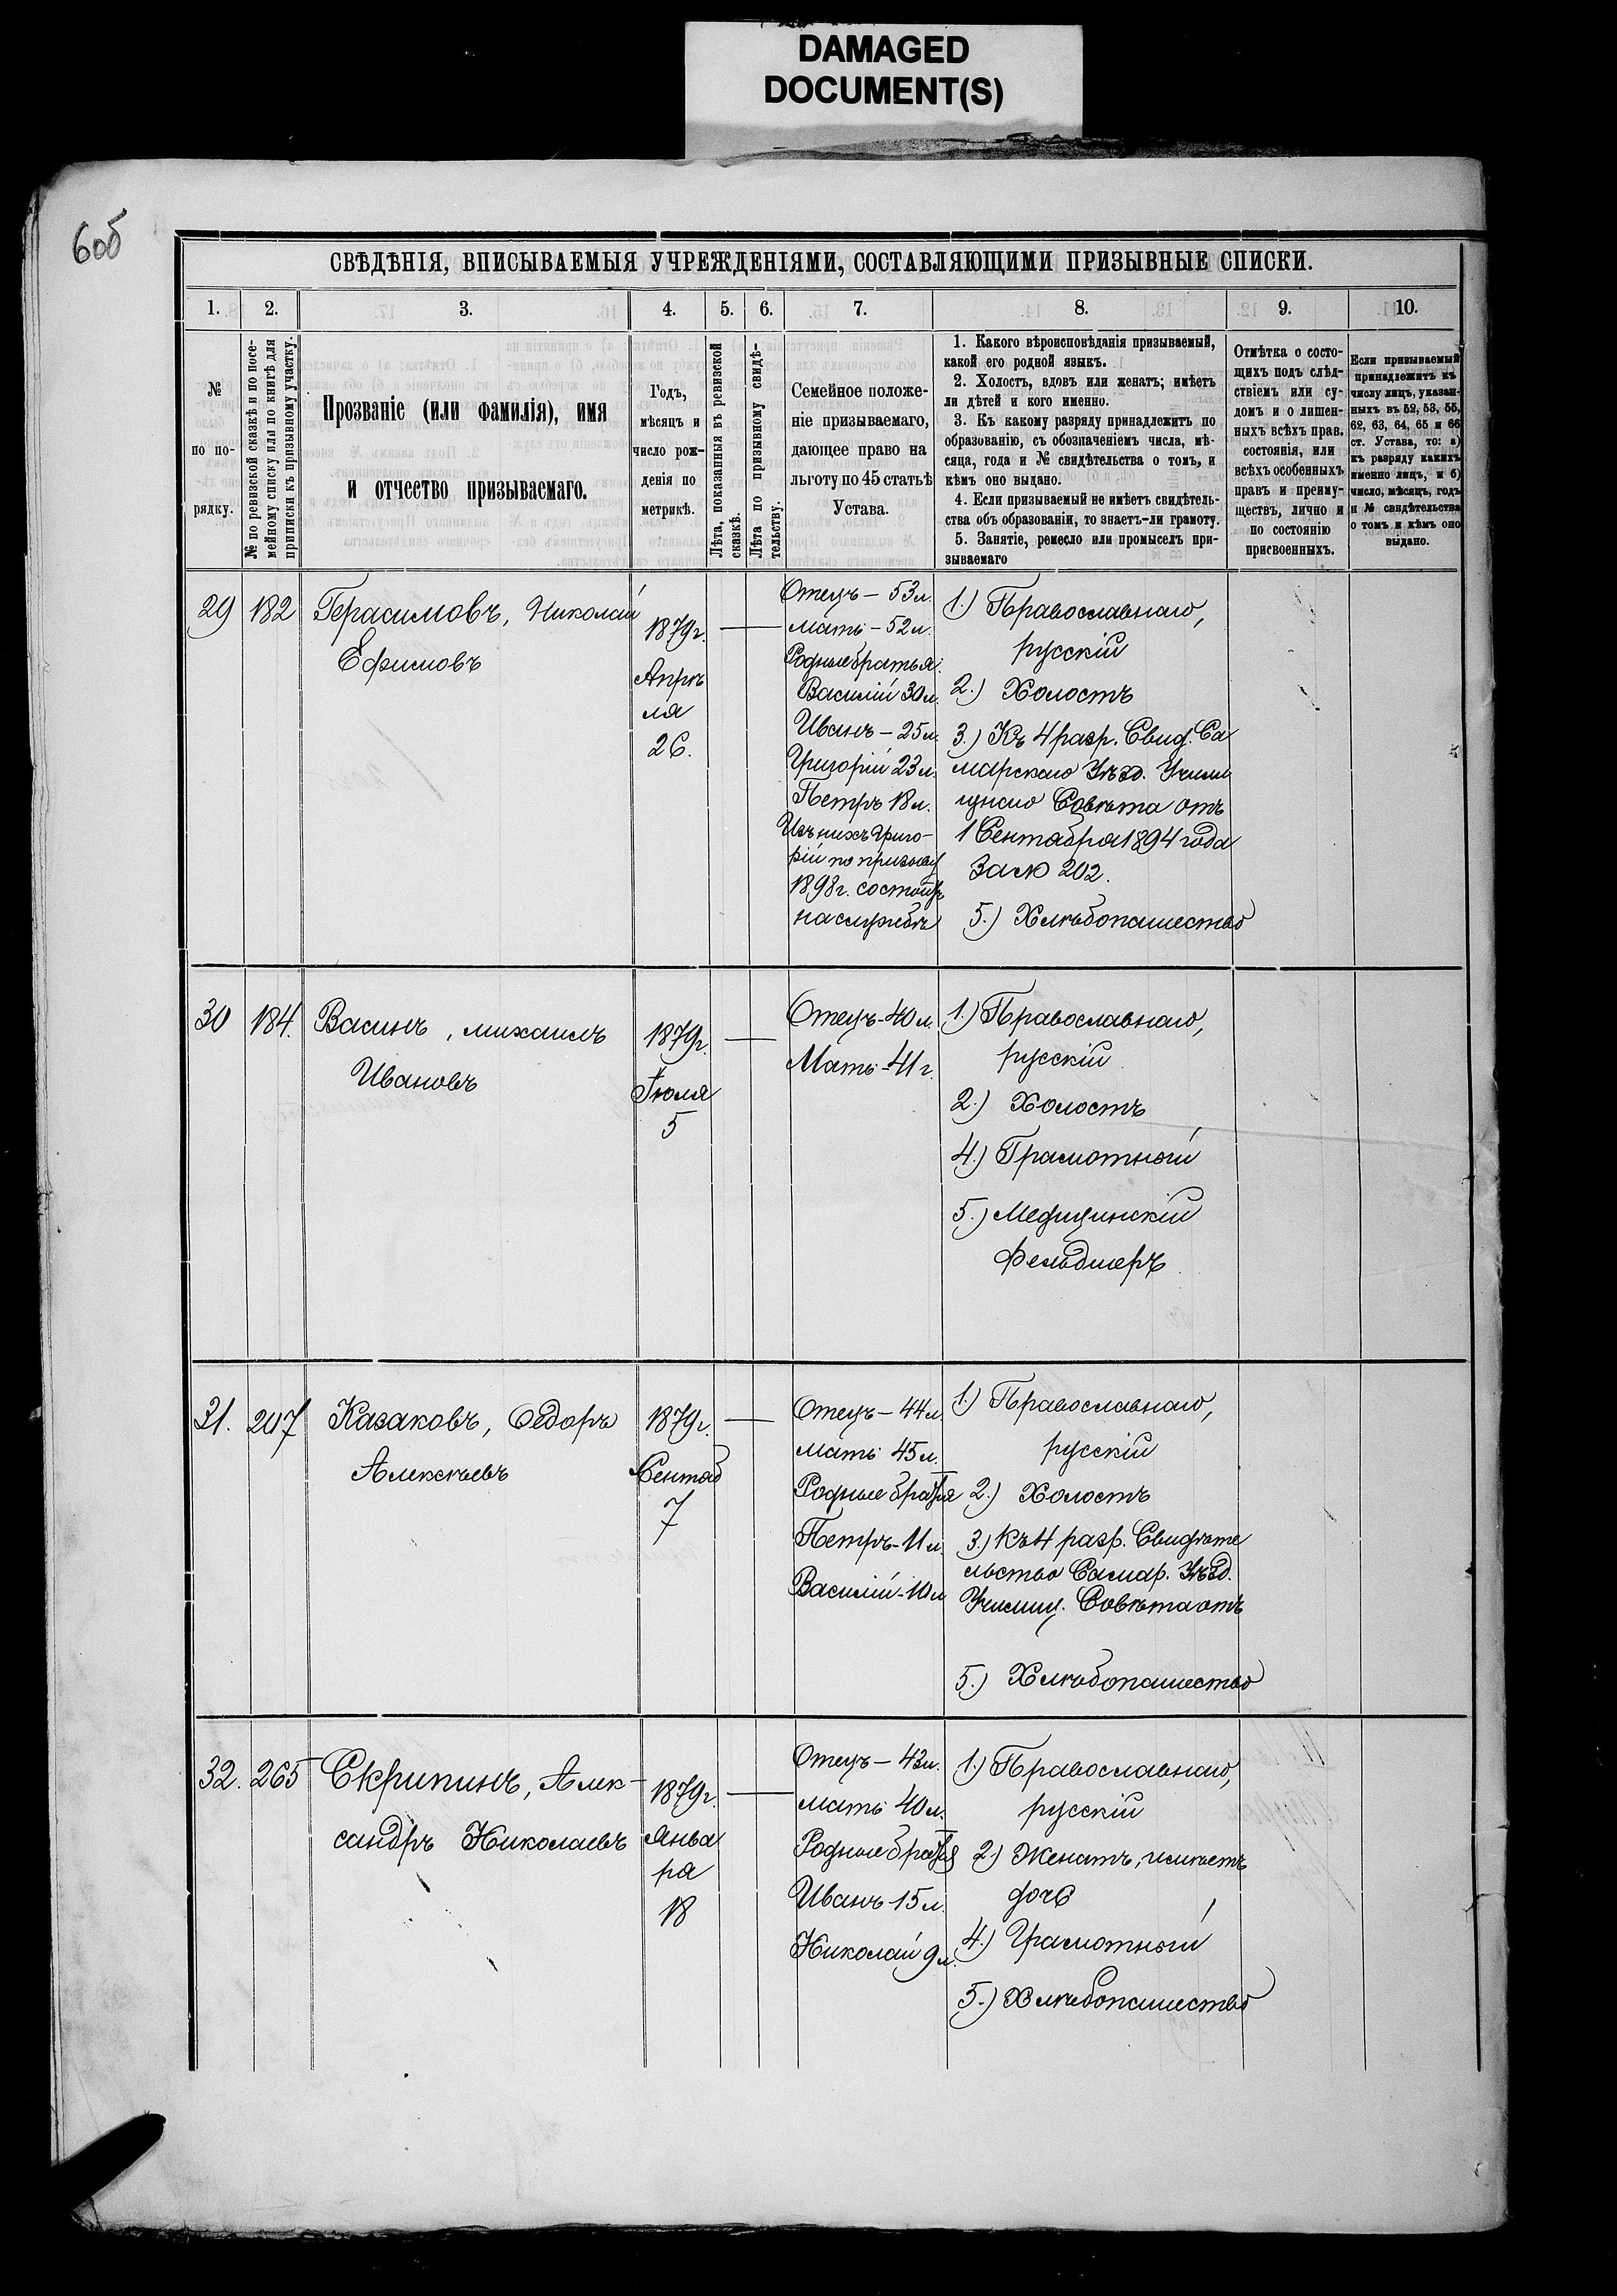 DAMAGED
DOCUMENT(S)
6об
СВѢДѢНІЯ, ВПИСЫВАЕМЫЯ УЧРЕЖДЕНІЯМИ, СОСТАВЛЯЮЩИМИ ПРИЗЫВНЫЕ СПИСКИ.
1. 2. 3. 4. 5. 6. 7. 8. 9. 10.
№
по по-
рядку.
№ по ревизской сказкѣ и по посе-
мейному списку или по книгѣ для
приписки къ призывному участку.
Прозваніе (или фамилія), имя
и отчество призываемаго.
Годъ,
мѣсяцъ и
число рож-
денія по
метрикѣ.
Лѣта, показанныя въ ревизской
сказкѣ.
Лѣта по призывному свидѣ-
тельству.
Семейное положе-
ніе призываемаго,
дающее право на
льготу по 45 статьѣ
Устава.
1. Какого вѣроисповѣданія призываемый,
какой его родной языкъ.
2. Холостъ, вдовъ или женатъ; имѣетъ
ли дѣтей и кого именно.
3. Къ какому разряду принадлежитъ по
образованію, съ обозначеніемъ числа, мѣ-
сяца, года и № свидѣтельства о томъ, и
кѣмъ оно выдано.
4. Если призываемый не имѣетъ свидѣтель-
ства объ образованіи, то знаетъ-ли грамоту.
5. Занятіе, ремесло или промыселъ при-
зываемаго
Отмѣтка о состо-
щихъ подъ слѣд-
ствіемъ или су-
домъ и о лишен-
ныхъ всѣхъ прав.
состоянія, или
всѣхъ особенныхъ
правъ и преиму-
ществъ, лично и
по состоянію
присвоенныхъ.
Если призываемый
принадлежитъ къ
числу лицъ, указан-
ныхъ въ 52, 53, 55,
62, 63, 64, 65 и 66
ст. Устава, то: а)
къ разряду какихъ
именно лицъ, и б)
число, мѣсяцъ, годъ
и № свидѣтельства
о томъ и кѣмъ оно
выдано.
29 182 Герасимовъ, Николай
Ефимовъ
1879г.
Апрѣ
ля
26.
Отецъ – 53л.
Мать – 52л.
Родные братья:
Василій 30л.
Иванъ – 25л.
Григорій 23л.
Петръ 18л.
Изъ нихъ Григо-
рій по призыву
1898г. состоитъ
на службѣ
1.) Православнаго,
русскій
2.) Холостъ
3.) Къ 4 разр. Свид. Са
марскаго Уѣзд. Учили
щнаго Совѣта отъ
1 Сентября 1894 года
за № 202.
5.) Хлѣбопашество
30 184. Васинъ, Михаилъ
Ивановъ
1879г.
Іюля
5
Отецъ-40л.
Мать-41г.
1.) Православнаго,
русскій
2.) Холостъ
4.) Грамотный
5.) Медицинскій
Фельдшеръ
31. 207 Казаковъ, Ѳедоръ
Алексѣевъ
1879г.
Сентяб
7
Отецъ – 44л.
Мать 45л.
Родные братья
Петръ-11л.
Василій-10л
1.) Православнаго,
русскій
2.) Холостъ
3.) Къ 4 разр. Свидѣте
льство Самар. Уѣзд.
Училищ. Совѣта отъ
5.) Хлѣбопашество
32. 265 Скрипинъ, Алек-
сандръ Николаевъ
1879г.
Янва
ря
18
Отецъ – 43л.
Мать 40л.
Родные братья
Иванъ 15л.
Николай 9л.
1.) Православнаго,
русскій
2.) Женатъ, имѣетъ
дочь
4.) Грамотный
5.) Хлѣбопашество